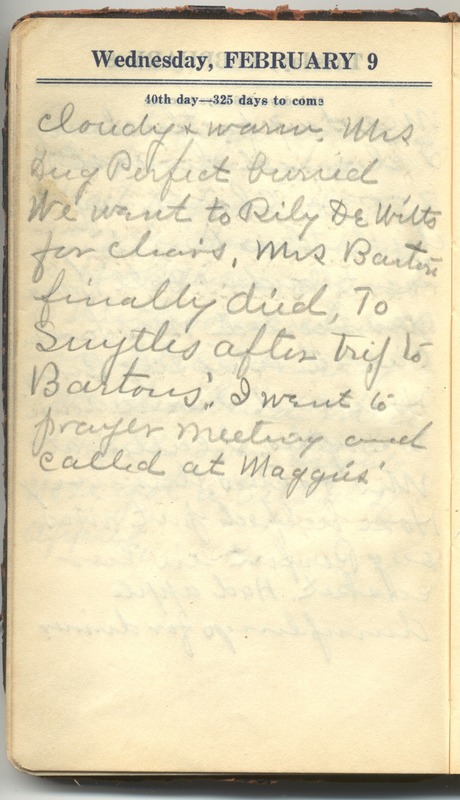 Wednesday, FEBRUARY 9
40th day—325 days to come
Cloudy & warm. Mrs
Dug Perfect buried
We went to Rily De Witts
for chairs, Mrs Barton
finally died, To
Smyths after trip to
Bartons'. I went to
prayer meeting and
called at Maggies'